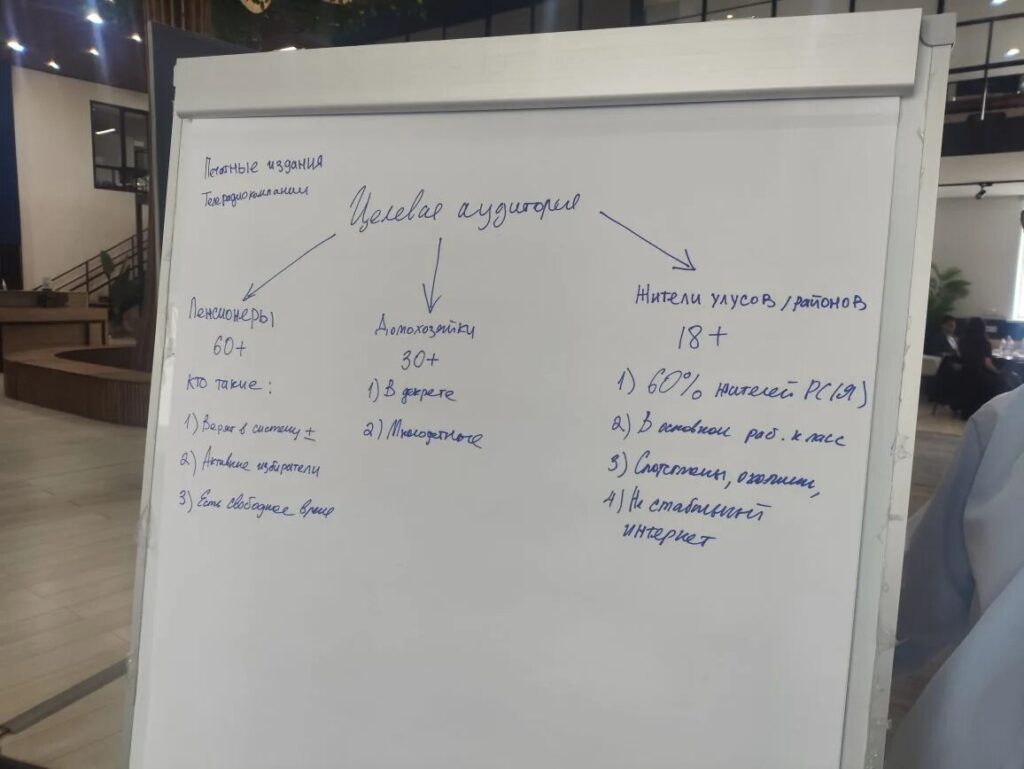 Печатные издания
Телерадиокомпании
Целевая аудитория
Пенсионеры
60+
кто такие:
1) Верят в систему ±
2) Активные избиратели
3) Есть свободное время
Домохозяйки
30+
1) В декрете
2) Многодетные
Жители улусов/районов
18+
1) 60% жителей РС(Я)
2) В основном раб. класс
3) Спортсмены, охотники,
4) Не стабильный
интернет